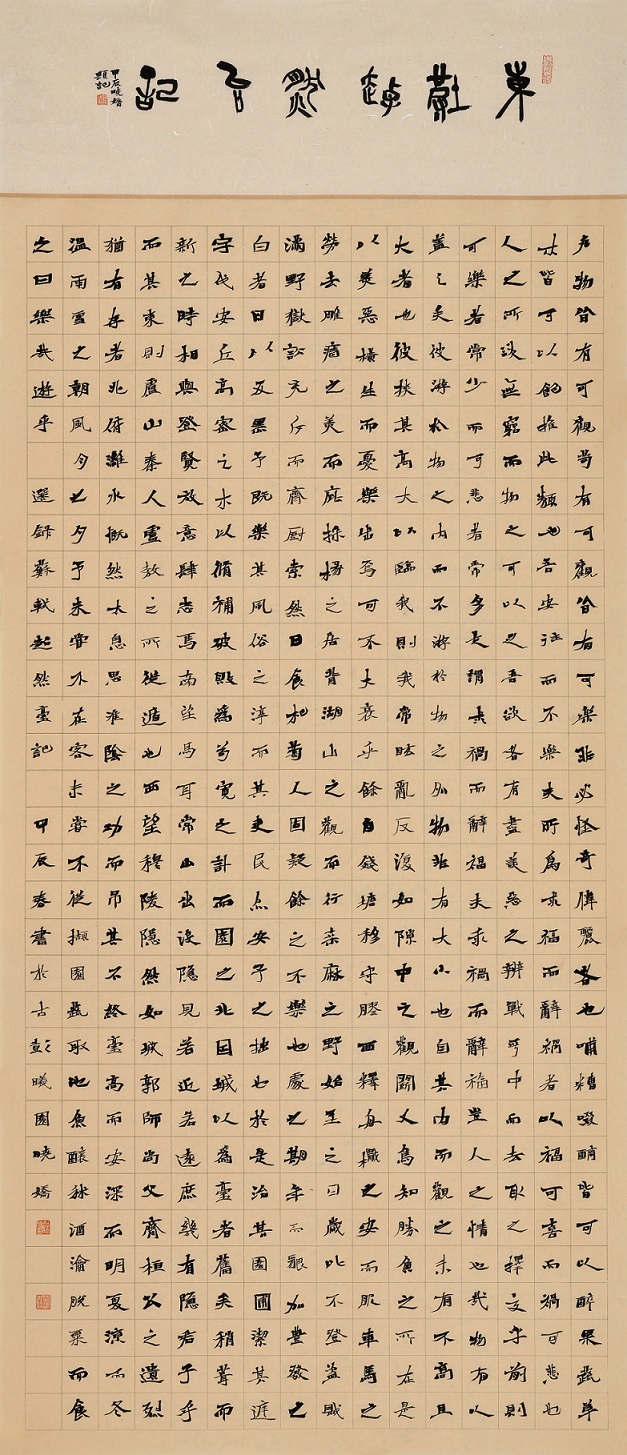 東坡超然台記
甲辰曉嬌
題記
凡物皆有可觀苟有可觀皆有可樂非必怪奇偉麗者也哺糟啜醨皆可以醉果蔬草
木皆可以飽推此類也吾安往而不樂夫所為求福而辭禍者以福可喜而禍可悲也
人之所欲無窮而物之可以足吾欲者有盡美惡之辨戰乎中而去取之擇交乎前則
可樂者常少而可悲者常多是謂求禍而辭福夫求禍而辭福豈人之情也哉物有以
蓋之矣彼游於物之內而不游於物之外物非有大小也自其內而觀之未有不高且
大者也彼挾其高大以臨我則我常眩亂反復如隙中之觀鬬又烏知勝負之所在是
以美惡橫生而憂樂出焉可不大哀乎餘自錢塘移守膠西釋舟楫之安而服車馬之
勞去雕牆之美而庇採椽之居背湖山之觀而行桑麻之野始至之日歲比不登盜賊
滿野獄訟充斥而齋廚索然日食杞菊人固疑餘之不樂也處之期年而貌加豐發之
白者日以反黑予既樂其風俗之淳而其吏民亦安予之拙也於是治其園圃潔其庭
宇伐安丘高密之木以修補破敗為苟完之計而園之北因城以為臺者舊矣稍葺而
新之時相與登覽放意肆志焉南望馬耳常山出沒隱見若近若遠庶幾有隱君子乎
而其東則廬山秦人盧敖之所從遁也西望穆陵隱然如城郭師尚父齊桓公之遺烈
猶有存者北俯濰水慨然太息思淮陰之功而吊其不終臺高而安深而明夏涼而冬
溫雨雪之朝風月之夕予未嘗不在客未嘗不從擷園蔬取池魚釀秫酒瀹脫粟而食
之曰樂哉遊乎 選錄蘇軾超然臺記 甲辰春書於古彭曦園曉嬌